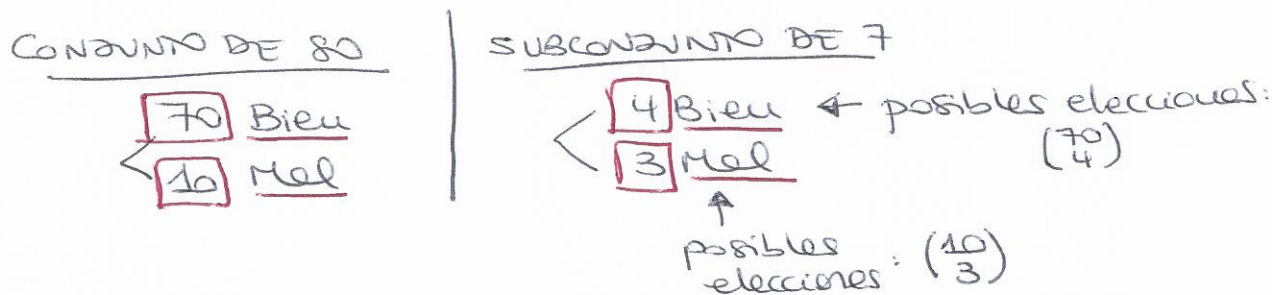 CONJUNTO DE 80
70 Bien
10 Mal
SUBCONJUNTO DE 7
4 Bien ← posibles elecciones:
(70
4)
3 Mal
↑
posibles
elecciones: (10
3)